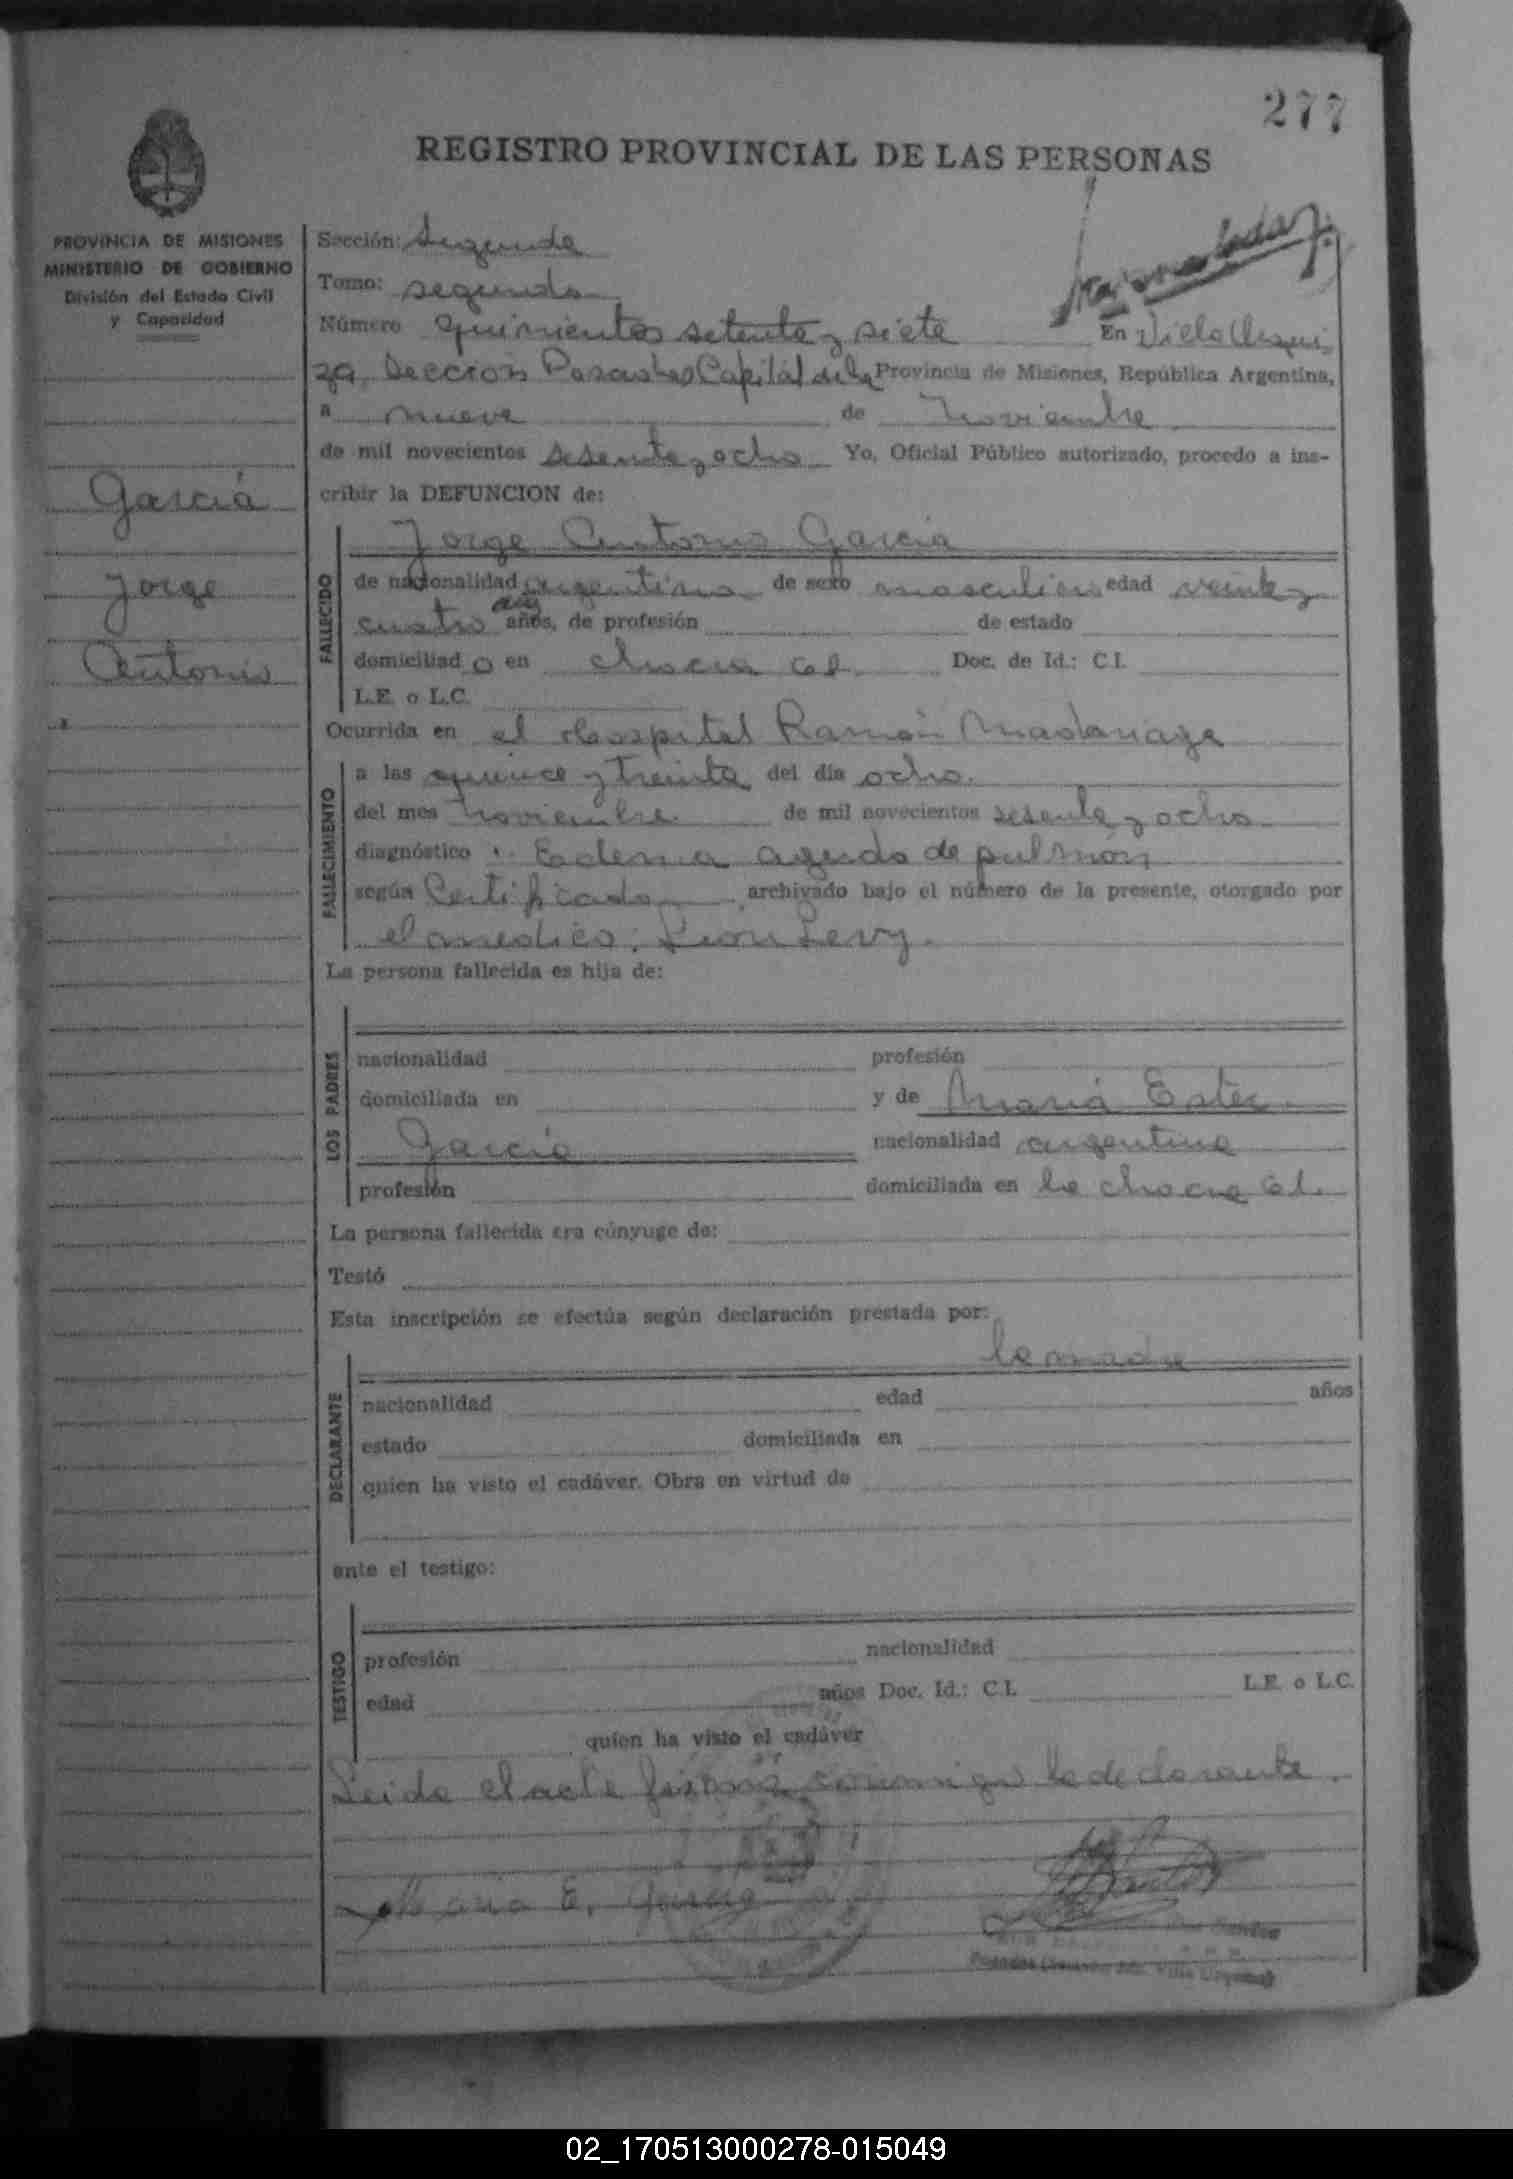 277
REGISTRO PROVINCIAL DE LAS PERSONAS
PROVINCIA DE MISIONES
MINISTERIO DE GOBIERNO
División del Estado Civil
y Capacidad
García
Jorge
Antonio
Sección: Segunda
Tomo: segundo
Número quinientos setenta y siete En Villa Urqui
za, Sección Posadas Capital de la Provincia de Misiones, República Argentina,
a nueve de Noviembre
de mil novecientos sesenta y ocho Yo, Oficial Público autorizado, procedo a ins-
cribir la DEFUNCION de:
FALLECIDO
Jorge Antonio García
de nacionalidad argentino de sexo masculino edad veinte y
cuatro años, de profesión de estado
domiciliado en chacra Doc. de Id.: C.I.
L.E. o L.C.
Ocurrida en el Hospital Ramón Madariaga
FALLECIMIENTO
a las quince y treinta del día ocho.
del mes Noviembre de mil novecientos sesenta y ocho
diagnóstico : Edema agudo de pulmon
según Certificado archivado bajo el número de la presente, otorgado por
el medico: Leon Levy.
La persona fallecida es hija de:
LOS PADRES
nacionalidad profesión
domiciliada en y de María Ester
García nacionalidad argentina
profesión domiciliada en la chacra
La persona fallecida era cónyuge de:
Testó
Esta inscripción se efectúa según declaración prestada por:
la madre
DECLARANTE
nacionalidad edad años
estado domiciliada en
quien ha visto el cadáver. Obra en virtud de
ante el testigo:
TESTIGO
profesión nacionalidad
edad años Doc. Id.: C.I. L.E. o L.C.
quien ha visto el cadáver
Leida el acta firma conmigo la declarante.
Maria E. Garcia
02_170513000278-015049